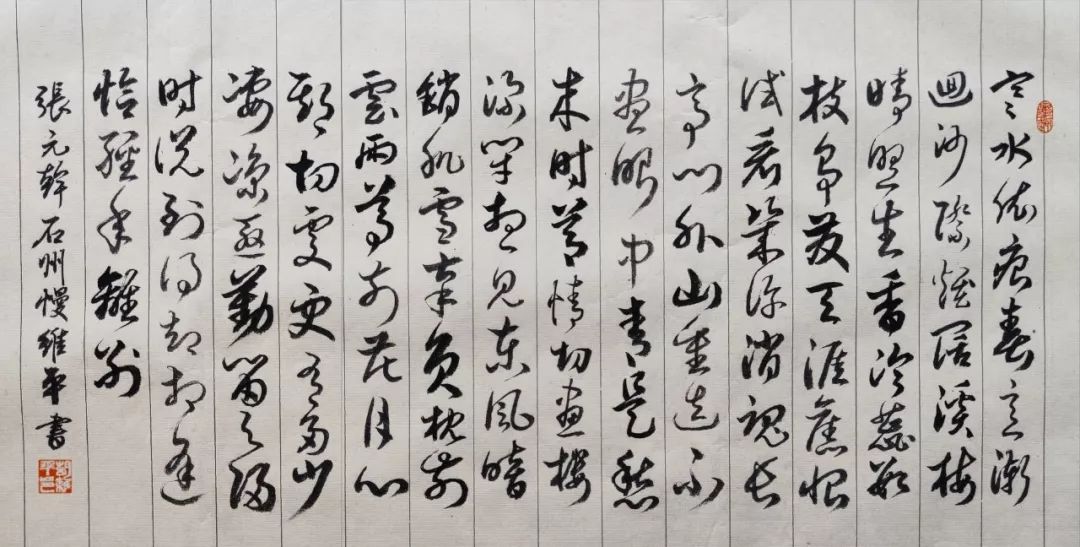 寒水依痕春意漸
迴沙際煙闊溪梅
晴照生香冷蕊數
枝争發天涯舊恨
试看幾许消魂长
亭门外山重迭不
畫眼中青是愁
来时節情切畫樓
深闭想见東風暗
銷肌雪辜負枕前
雲雨尊前花月心
期切處更有多少
凄凉殷勤留与歸
时说到得却相逢
恰經年離别
張元幹石州慢維平書